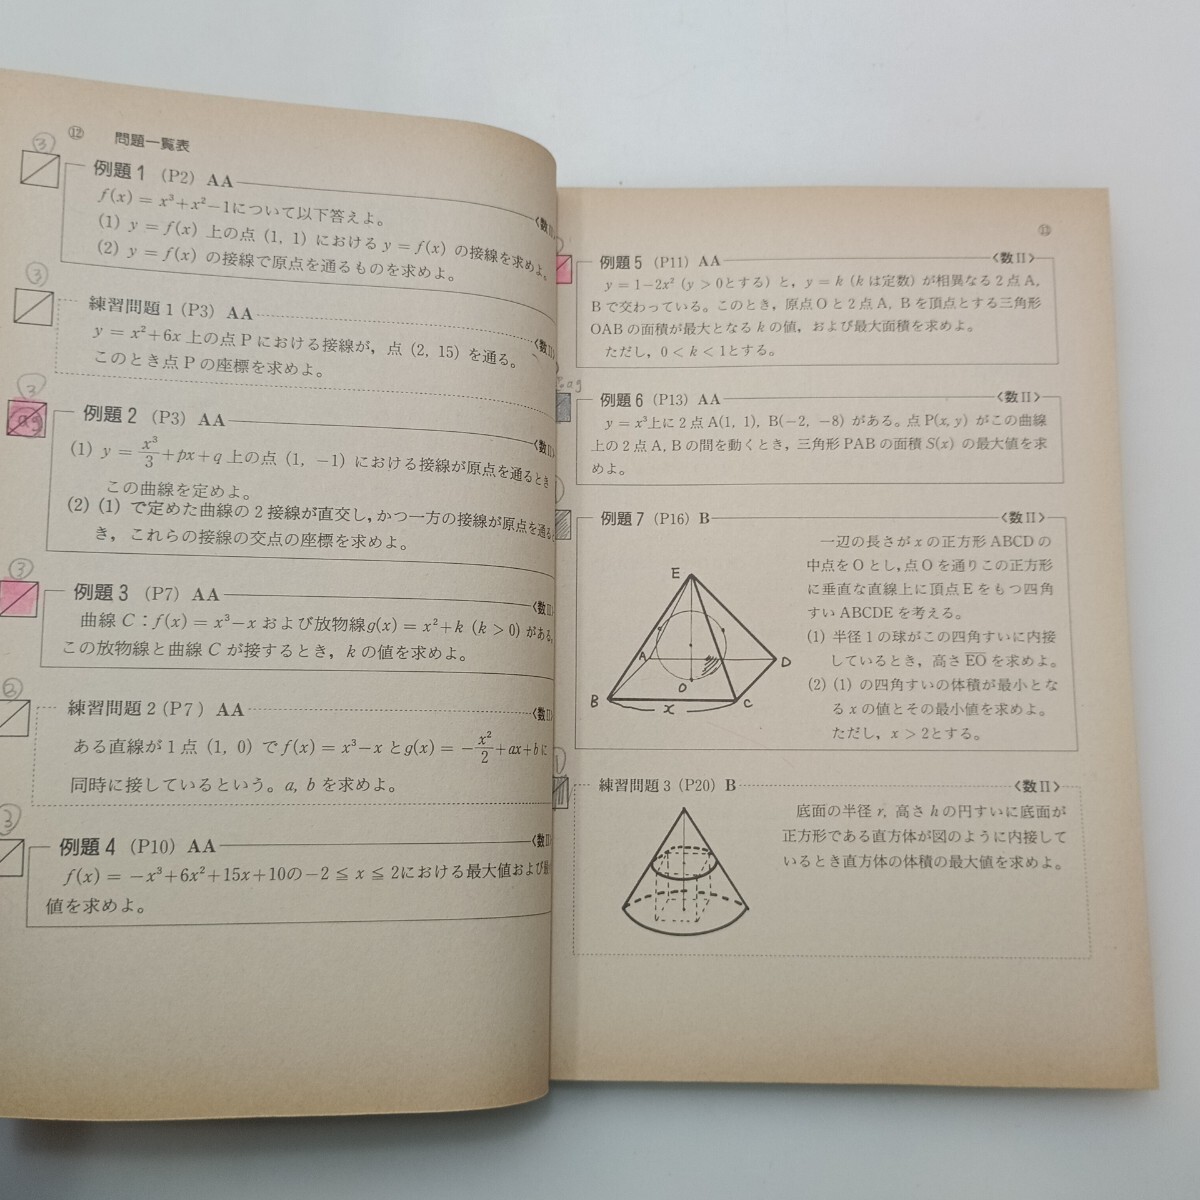 ⑫ 問題一覧表
③
例題1 (P2) AA
〈数II
f(x) = x³+x²−1について以下答えよ。
(1) y = f(x) 上の点 (1, 1) における y = f(x) の接線を求めよ。
(2) y = f(x) の接線で原点を通るものを求めよ。
③
練習問題1 (P3) AA
〈数II
y = x²+6x 上の点Pにおける接線が，点 (2, 15) を通る。
このとき点Pの座標を求めよ。
③
例題2 (P3) AA
〈数II
(1) y = x³/3 + px + q 上の点 (1, −1) における接線が原点を通るとき
この曲線を定めよ。
(2) (1) で定めた曲線の2接線が直交し，かつ一方の接線が原点を通る
き，これらの接線の交点の座標を求めよ。
③
例題3 (P7) AA
〈数II
曲線 C：f(x) = x³−x および放物線g(x) = x²+k (k > 0) がある。
この放物線と曲線 C が接するとき，k の値を求めよ。
②
練習問題2 (P7) AA
〈数II
ある直線が1点 (1, 0) で f(x) = x³−x と g(x) = −x²/2 + ax + b に
同時に接しているという。a, b を求めよ。
③
例題4 (P10) AA
〈数II
f(x) = −x³+6x²+15x+10の−2 ≦ x ≦ 2における最大値および
値を求めよ。
⑬
例題5 (P11) AA 〈数II〉
y = 1−2x² (y > 0とする) と，y = k (k は定数) が相異なる2点A,
Bで交わっている。このとき，原点Oと2点A, Bを頂点とする三角形
OABの面積が最大となる k の値，および最大面積を求めよ。
ただし，0 < k < 1とする。
例題6 (P13) AA 〈数II〉
y = x³上に2点A(1, 1), B(−2, −8) がある。点P(x, y) がこの曲線
上の2点A, Bの間を動くとき，三角形PABの面積 S(x) の最大値を求
めよ。
例題7 (P16) B 〈数II〉
一辺の長さが x の正方形ABCDの
中点をOとし，点Oを通りこの正方形
に垂直な直線上に頂点Eをもつ四角
すいABCDEを考える。
(1) 半径1の球がこの四角すいに内接
しているとき，高さEOを求めよ。
(2) (1) の四角すいの体積が最小とな
る x の値とその最小値を求めよ。
ただし，x > 2とする。
E
A
D
O
B
x
C
練習問題3 (P20) B 〈数II〉
底面の半径 r, 高さ h の円すいに底面が
正方形である直方体が図のように内接して
いるとき直方体の体積の最大値を求めよ。